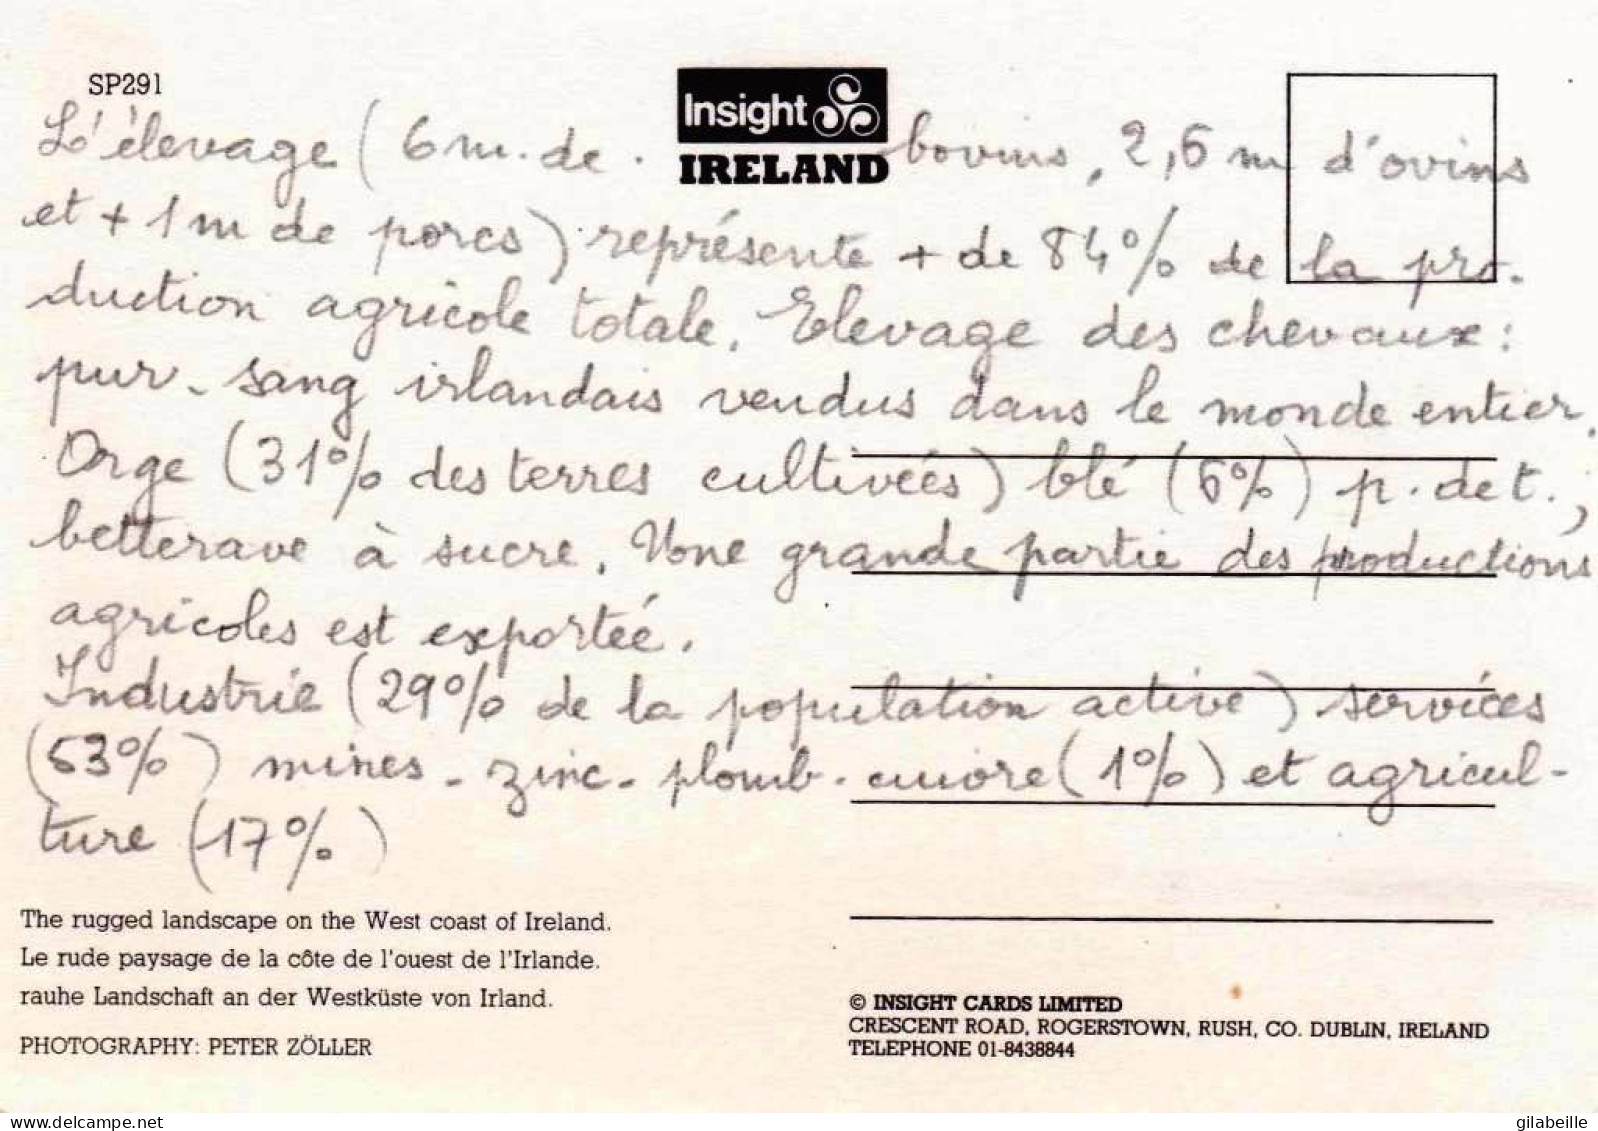 SP291
Insight
IRELAND
L'élevage ( 6 m. de . bovins, 2,6 m d'ovins
et + 1 m de porcs) représente + de 84% de la pro-
duction agricole totale. Elevage des chevaux :
pur-sang irlandais vendus dans le monde entier.
Orge (31% des terres cultivées) blé (6%) p. de t.,
betterave à sucre. Une grande partie des productions
agricoles est exportée.
Industrie (29% de la population active) services
(53%) mines - zinc - plomb - cuivre (1%) et agricul-
ture (17%)
The rugged landscape on the West coast of Ireland.
Le rude paysage de la côte de l'ouest de l'Irlande.
rauhe Landschaft an der Westküste von Irland.
PHOTOGRAPHY: PETER ZÖLLER
© INSIGHT CARDS LIMITED
CRESCENT ROAD, ROGERSTOWN, RUSH, CO. DUBLIN, IRELAND
TELEPHONE 01-8438844
delcampe.net
gilabeille